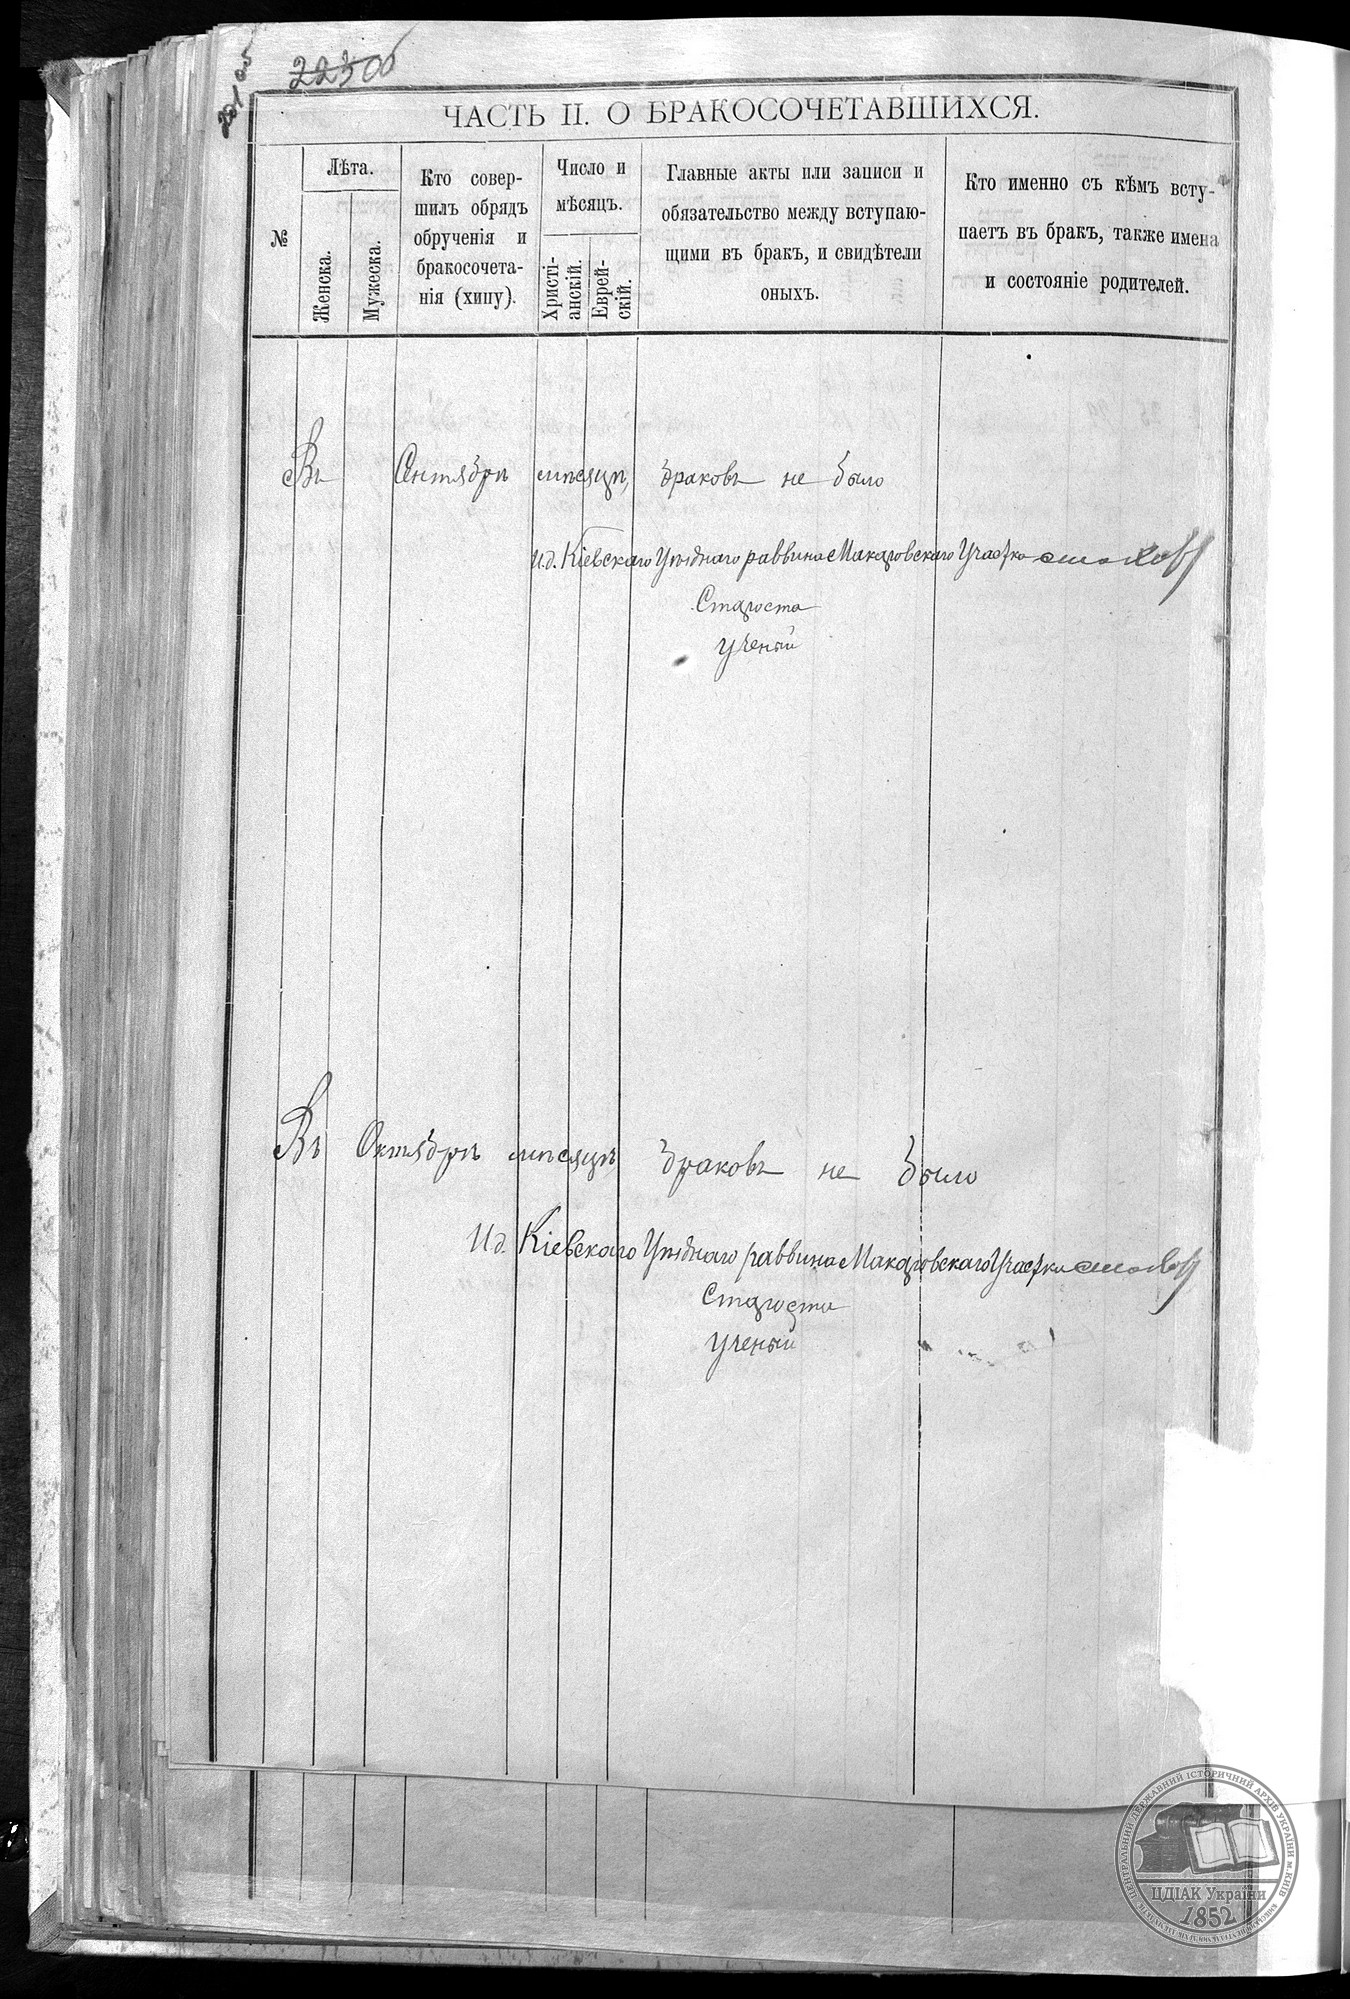 22300
ЧАСТЬ II. О БРАКОСОЧЕТАВШИХСЯ.
№
Лѣта.
Женска.
Мужеска.
Кто совер-
шилъ обрядъ
обрученія и
бракосочета-
нія (хипу).
Число и
мѣсяцъ.
Христі-
анскій.
Еврей-
скій.
Главные акты или записи и
обязательство между вступаю-
щими въ бракъ, и свидѣтели
оныхъ.
Кто именно съ кѣмъ всту-
паетъ въ бракъ, также имена
и состояніе родителей.
Въ Сентябрѣ мѣсяцѣ браковъ не было
И.д. Кіевскаго Уѣзднаго раввина Макаровскаго Участка
Староста
Ученый
Въ Октябрѣ мѣсяцѣ браковъ не было
И.д. Кіевскаго Уѣзднаго раввина Макаровскаго Участка
Староста
Ученый
ЦЕНТРАЛЬНИЙ ДЕРЖАВНИЙ ІСТОРИЧНИЙ АРХІВ УКРАЇНИ М. КИЇВ
ЦДІАК України
1852